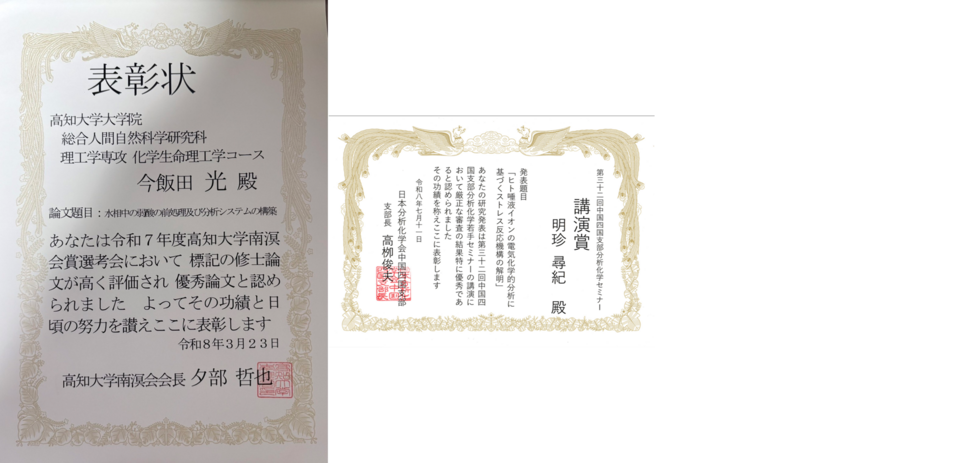 表彰状
高知大学大学院
総合人間自然科学研究科
理工学専攻 化学生命理工学コース
今飯田 光 殿
論文題目：水相中の弱酸の前処理及び分析システムの構築
あなたは令和７年度高知大学南溟
会賞選考会において 標記の修士論
文が高く評価され 優秀論文と認め
られました よってその功績と日
頃の努力を讃えここに表彰します
令和８年３月２３日
高知大学南溟会会長 夕部 哲也
第三十二回中国四国支部分析化学セミナー
講演賞
明珍 尋紀 殿
発表題目
「ヒト唾液イオンの電気化学的分析に
基づくストレス反応機構の解明」
あなたの研究発表は第三十二回中国四
国支部分析化学若手セミナーの講演に
おいて厳正な審査の結果特に優秀であ
ると認められました
その功績を称えここに表彰します
令和八年七月十一日
日本分析化学会中国四国支部
支部長 高栁俊夫